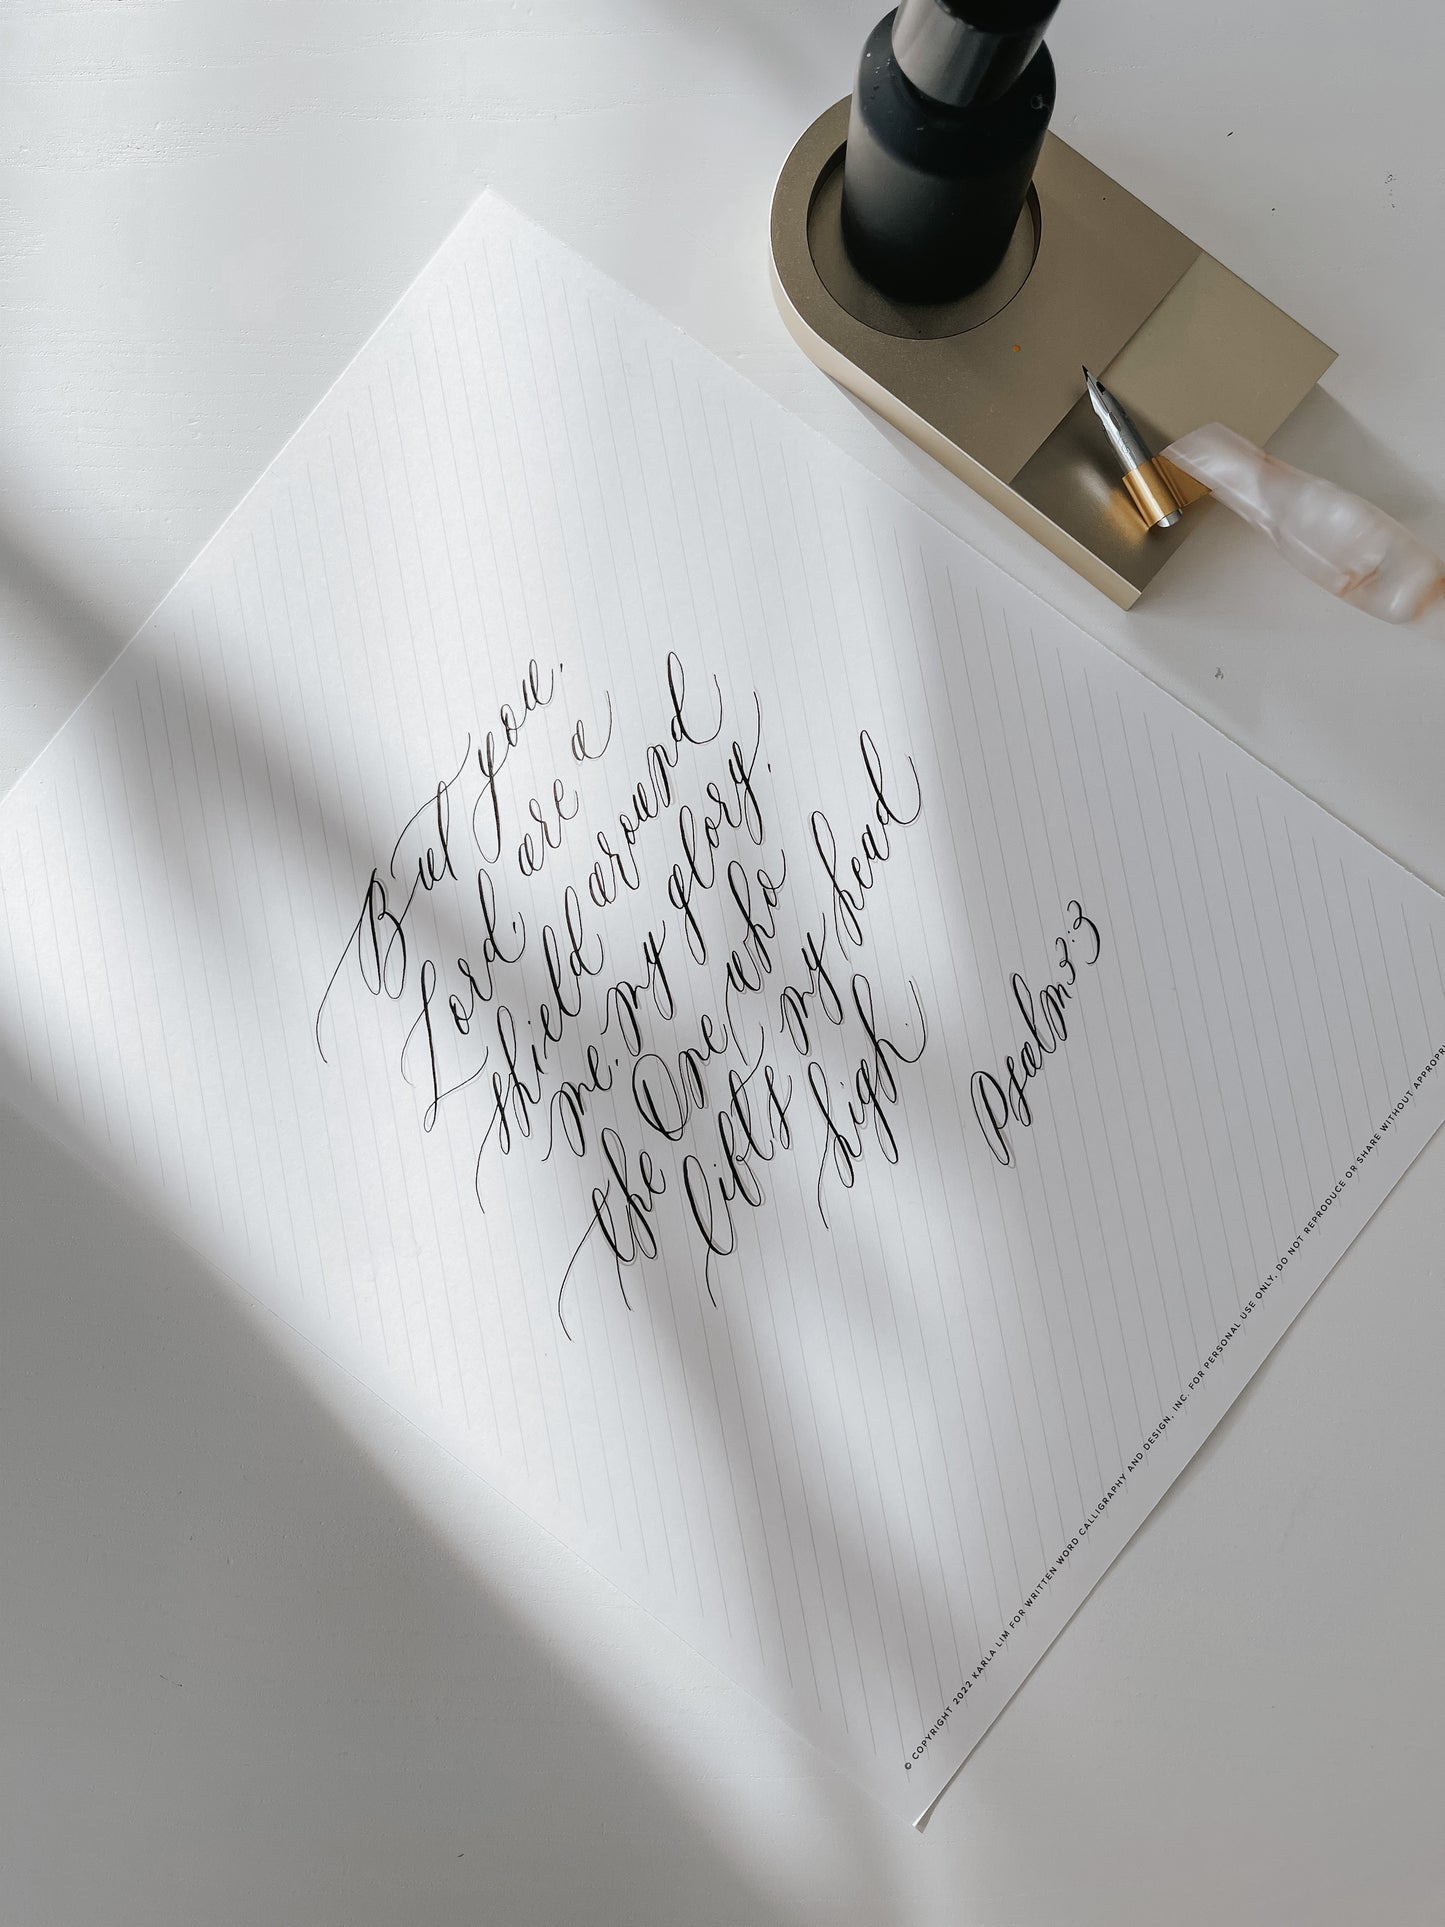 But you,
Lord, are a
shield around
me, my glory,
the One who
lifts my head
high.
Psalm 3:3
© COPYRIGHT 2022 KARLA LIM FOR WRITTEN WORD CALLIGRAPHY AND DESIGN, INC. FOR PERSONAL USE ONLY. DO NOT REPRODUCE OR SHARE WITHOUT